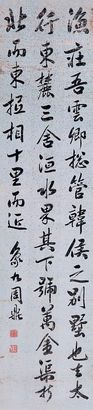 漁莊吾雲卿總管韓侯之別墅也去太
行東麓三舍洹水界其下號萬金渠折
北而東拒相十里而近 象九周鼎